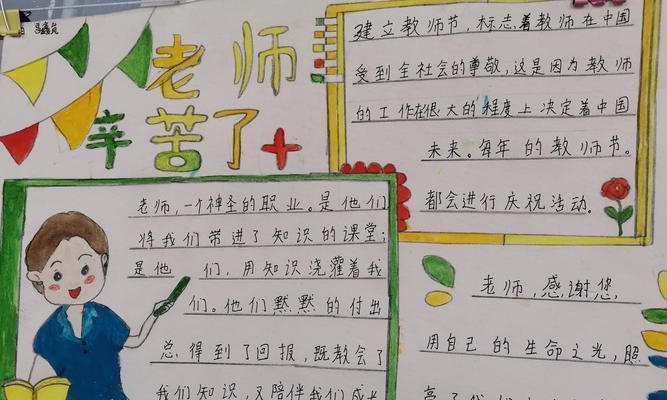 老师
辛苦了
建立教师节，标志着教师在中国
受到全社会的尊敬，这是因为教师
的工作在很大的程度上决定着中国
未来。每年的教师节。
都会进行庆祝活动。
老师，一个神圣的职业。是他们
将我们带进了知识的课堂；
是他们，用知识浇灌着我
们。他们默默的付出
总得到了回报，既教会了
我们知识，又陪伴我们成长
老师，感谢您
用自己的生命之光，照
亮了我